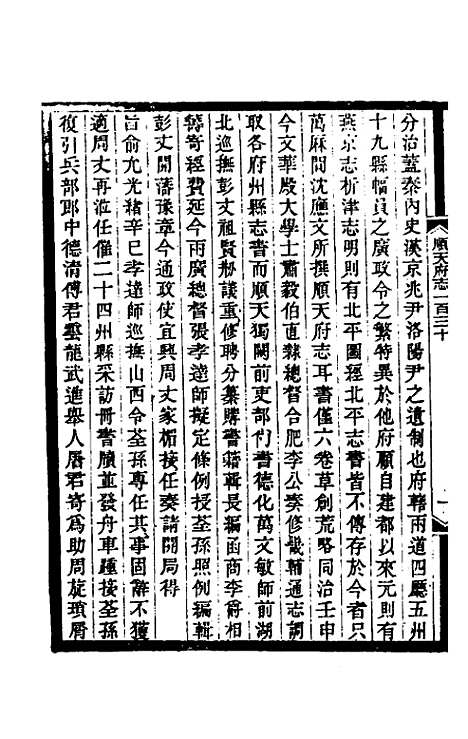 順天府志一百三十
一
分治蓋秦內史漢京兆尹洛陽尹之遺制也府轄兩道四廳五州
十九縣幅員之廣政令之繁特異於他府顧自建都以來元則有
燕京志析津志明則有北平圖經北平志書皆不傳存於今者只
萬厤間沈應文所撰順天府志耳書僅六卷草創荒略同治壬申
今文華殿大學士肅毅伯直隸總督合肥李公奏修畿輔通志調
取各府州縣志書而順天獨闕前吏部尚書德化萬文敏師前湖
北巡撫彭丈祖賢剏議重修聘分纂購書籍輯長編函商李爵相
籌寄經費延今兩廣總督張孝達師擬定條例授荃孫照例編輯
彭丈開藩豫章今通政使宜興周丈家楣接任奏請開局得
旨俞允光緒辛巳孝達師巡撫山西令荃孫專任其事固辭不獲
適周丈再涖任催二十四州縣采訪冊書牘並發舟車踵接荃孫
復引兵部郎中德清傅君雲龍武進舉人屠君寄爲助周旋瑣屑